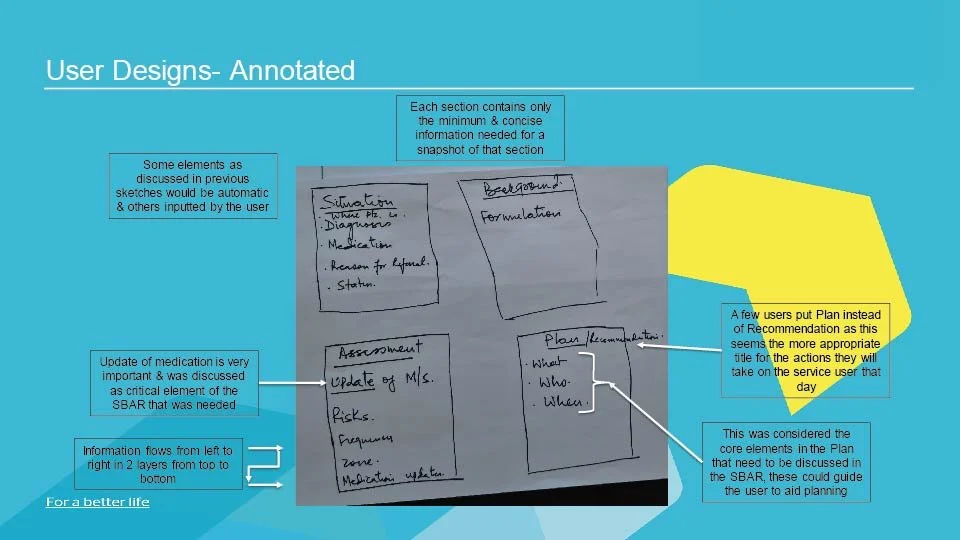 User Designs- Annotated
Each section contains only
the minimum & concise
information needed for a
snapshot of that section
Some elements as
discussed in previous
sketches would be automatic
& others inputted by the user
Situation
· Where Ptz. is.
· Diagnosis
· Medication
· Reason for Referral.
· Status.
Background.
Formulation
A few users put Plan instead
of Recommendation as this
seems the more appropriate
title for the actions they will
take on the service user that
day
Update of medication is very
important & was discussed
as critical element of the
SBAR that was needed
Assessment
Update of M/s.
Risks.
Frequency
Zone.
Medication updates
Plan /Recommendation.
· What
· Who.
· When.
Information flows from left to
right in 2 layers from top to
bottom
This was considered the
core elements in the Plan
that need to be discussed in
the SBAR, these could guide
the user to aid planning
For a better life